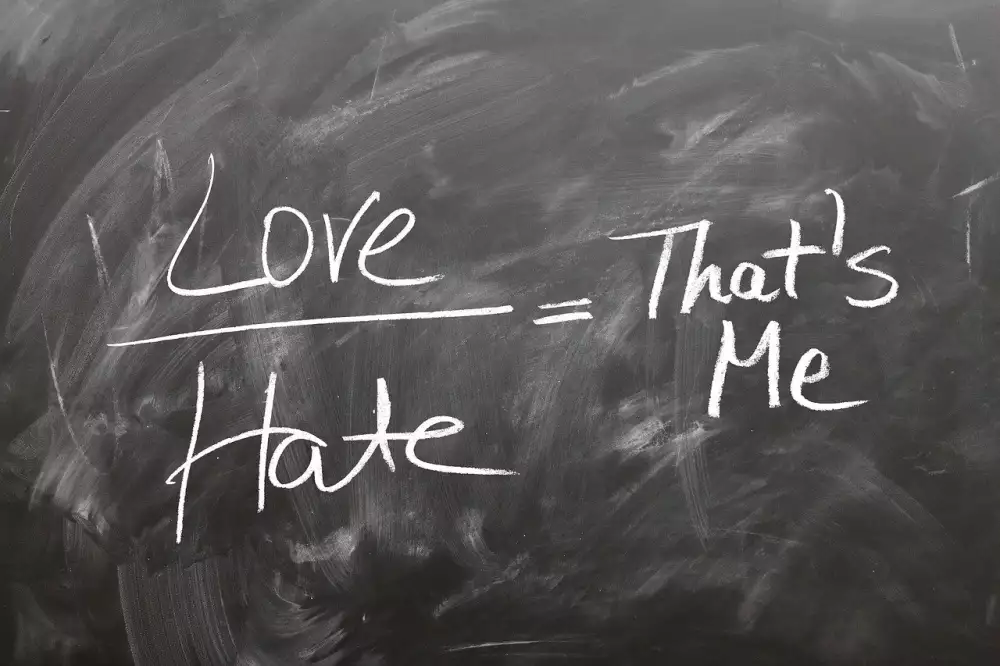 Love
Hate
=
That's
Me